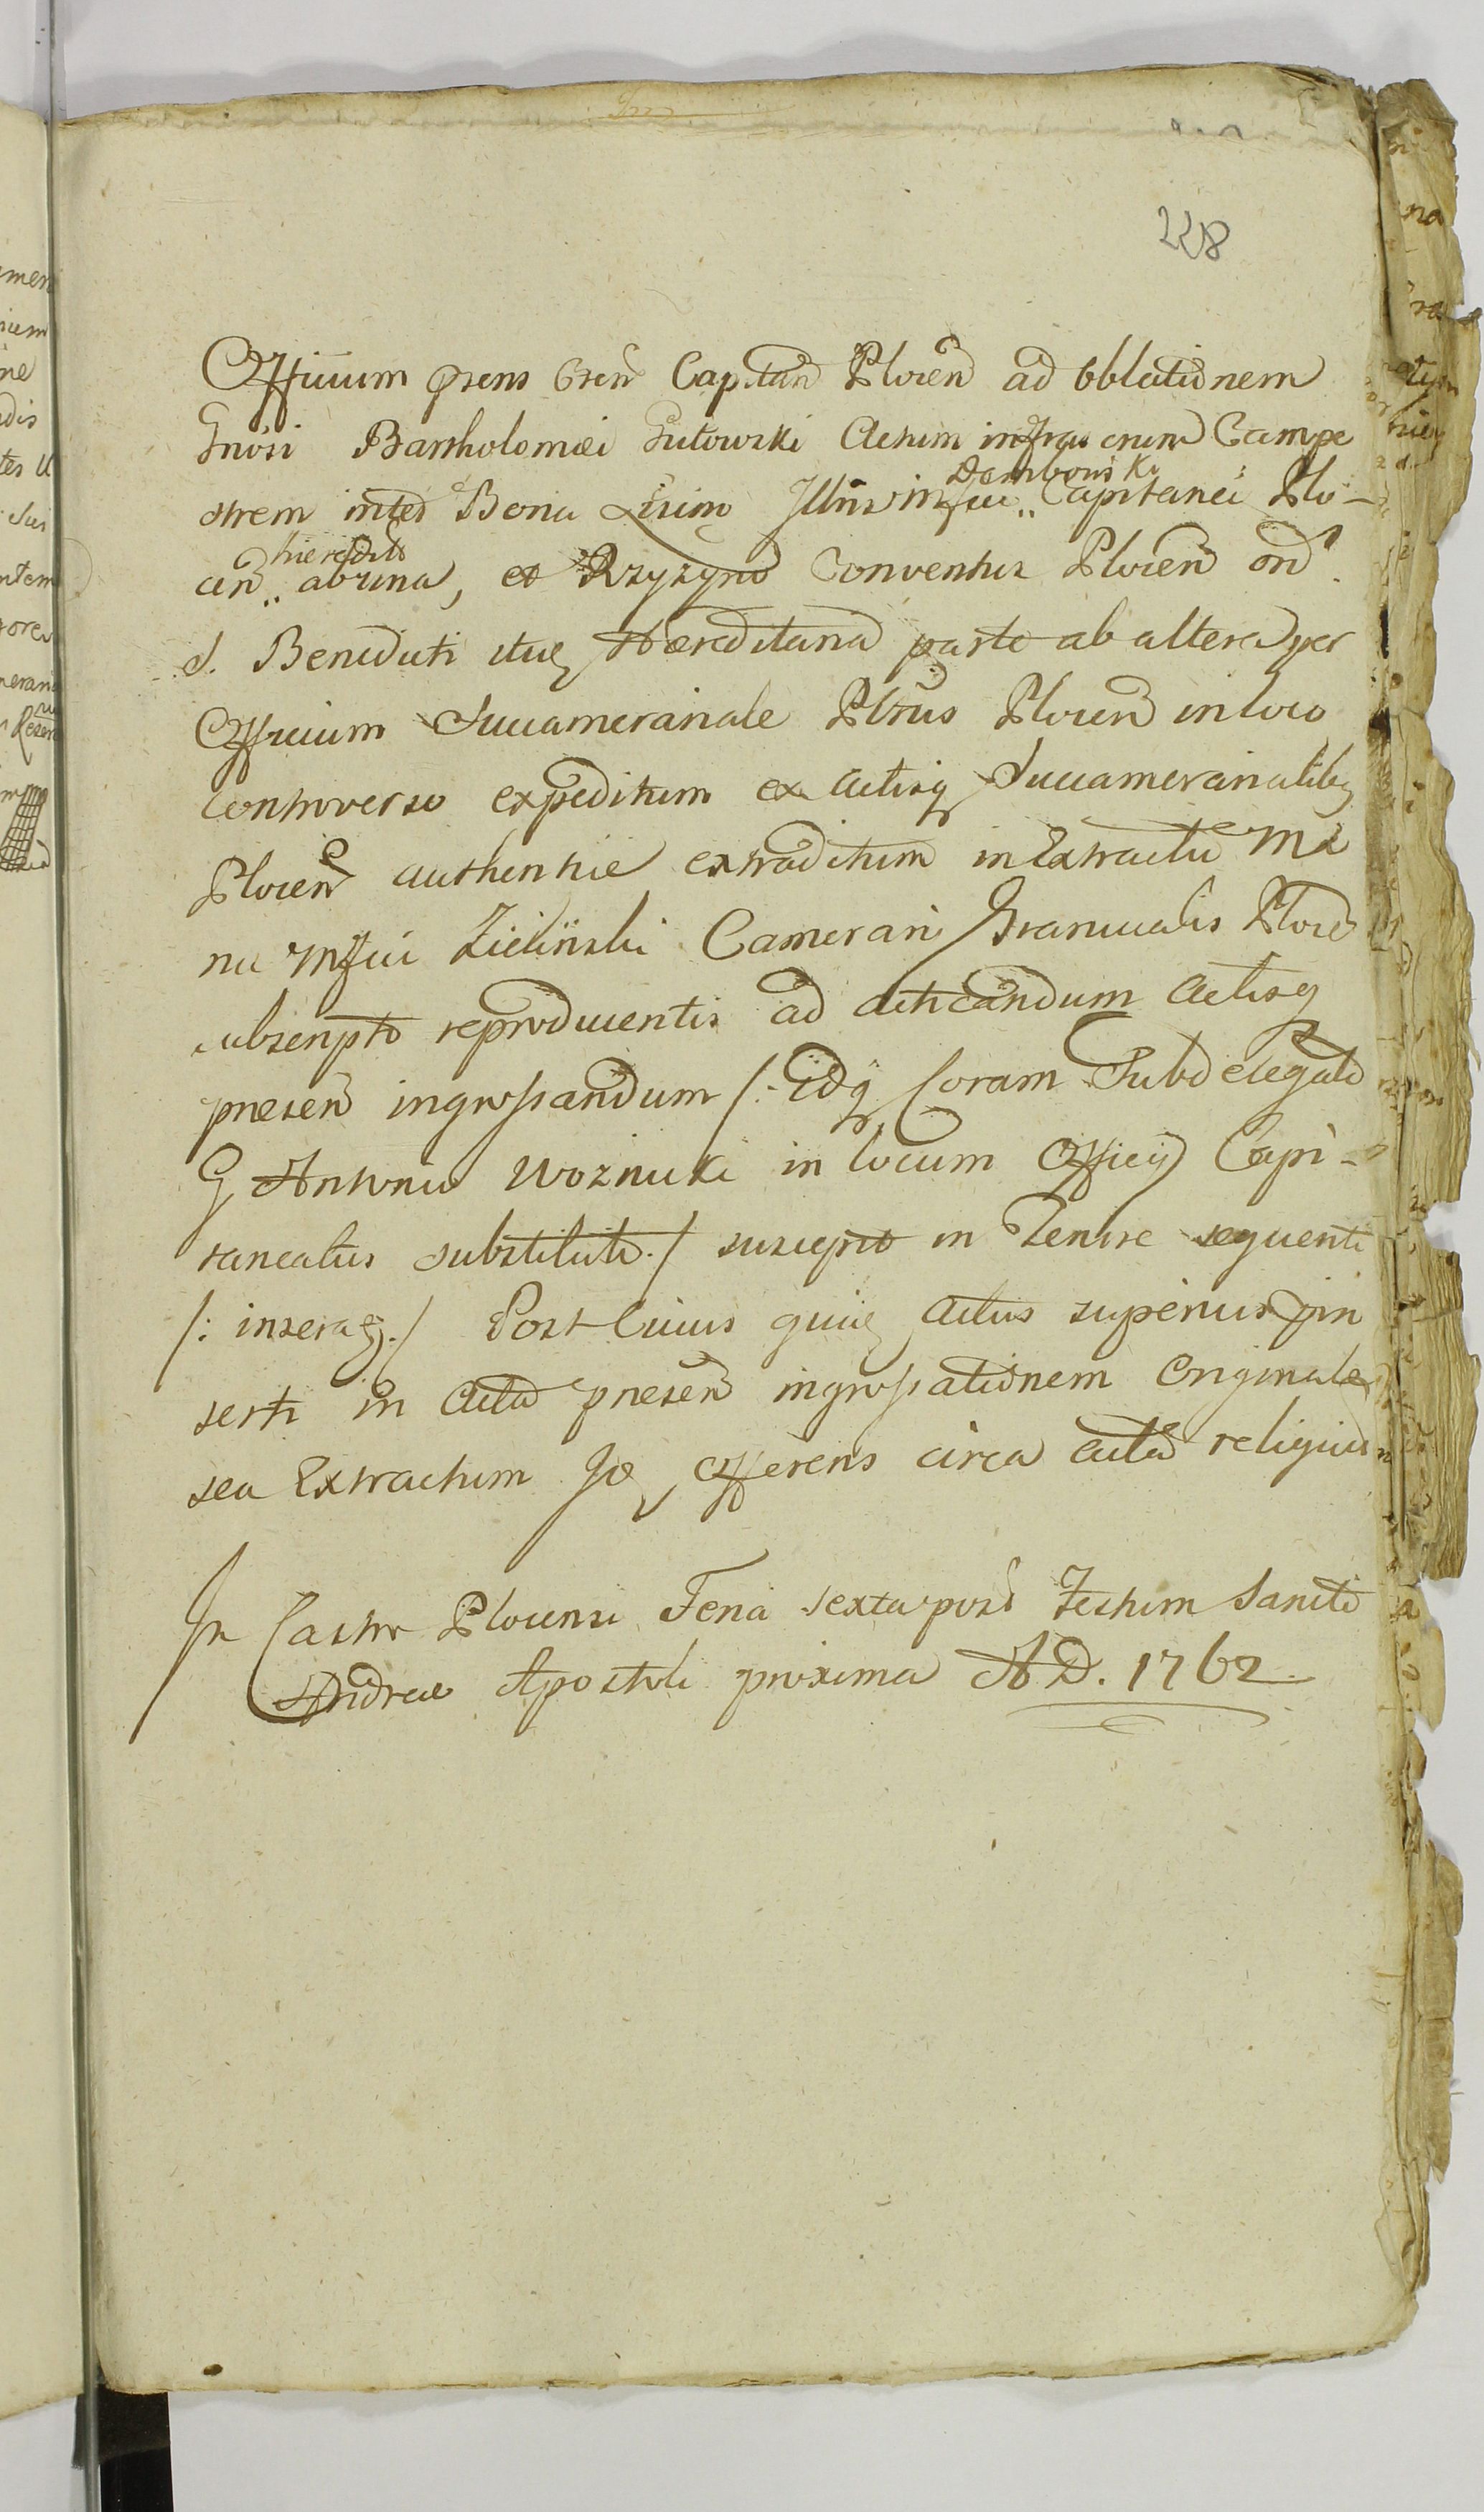 228
Officium prens Cren Capitan Plocen ad Oblationem
Gnosi Bartholomæi Gutowski Actum infrascrium Campe
Dembowski
strem inter Bona Lisino Illris Mfici Capitanei Plo-
hæredita
cen ab una, et Rzyzyno Conventus Plocen ord
S. Benedicti itue Hæreditaria parte ab altera per
Officium Succamerariale Pltus Plocen in loco
controverso expeditum ex Actisq Succamerarialibq
Plocen authentice extraditum in Extractu Ma
nu Mfici Zielinski Camerarii Granicialis Plocen
subscripto reproducentis ad acticandum Actisq
presen ingrossandum /: Idq Coram Subdelegato
G Antonio Woznicki in locum Officij Capi-
tanealis substituto :/ suscepit in Tenore sequenti
/: inserat :/ Post Cuius quie Actus superius in
serti in Acta presen ingrossationem Originale
sea Extractum Ide Offerens circa acta reliquit
In Castro Plocensi Feria sexta post Festum Sancti
Andreæ Apostoli proxima A D. 1762